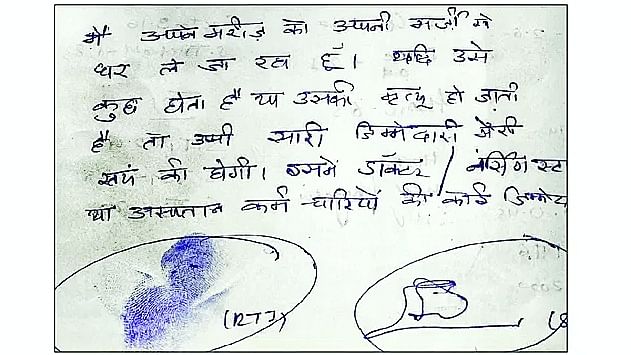 मैं अपने मरीज़ को अपनी मर्जी से
घर ले जा रहा हूँ। यदि उसे
कुछ होता है या उसकी मृत्यू हो जाती
है तो उसकी सारी जिम्मेदारी मेरी
स्वयं की होगी। इसमें डॉक्टर / नर्सिंग स्टा
या अस्पताल कर्मचारियों की कोई जिम्मेद
(RTI)